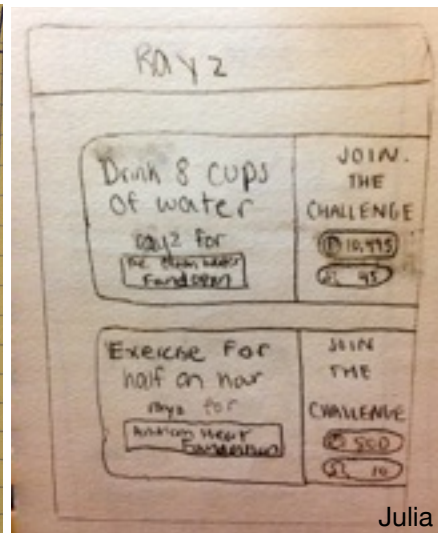 Rayz
Drink 8 cups
of water
rayz for
the clean water
JOIN.
THE
CHALLENGE
10,495
45
Exercise for
half an hour
rayz for
American Heart
JOIN
THE
CHALLENGE
550
10
Julia